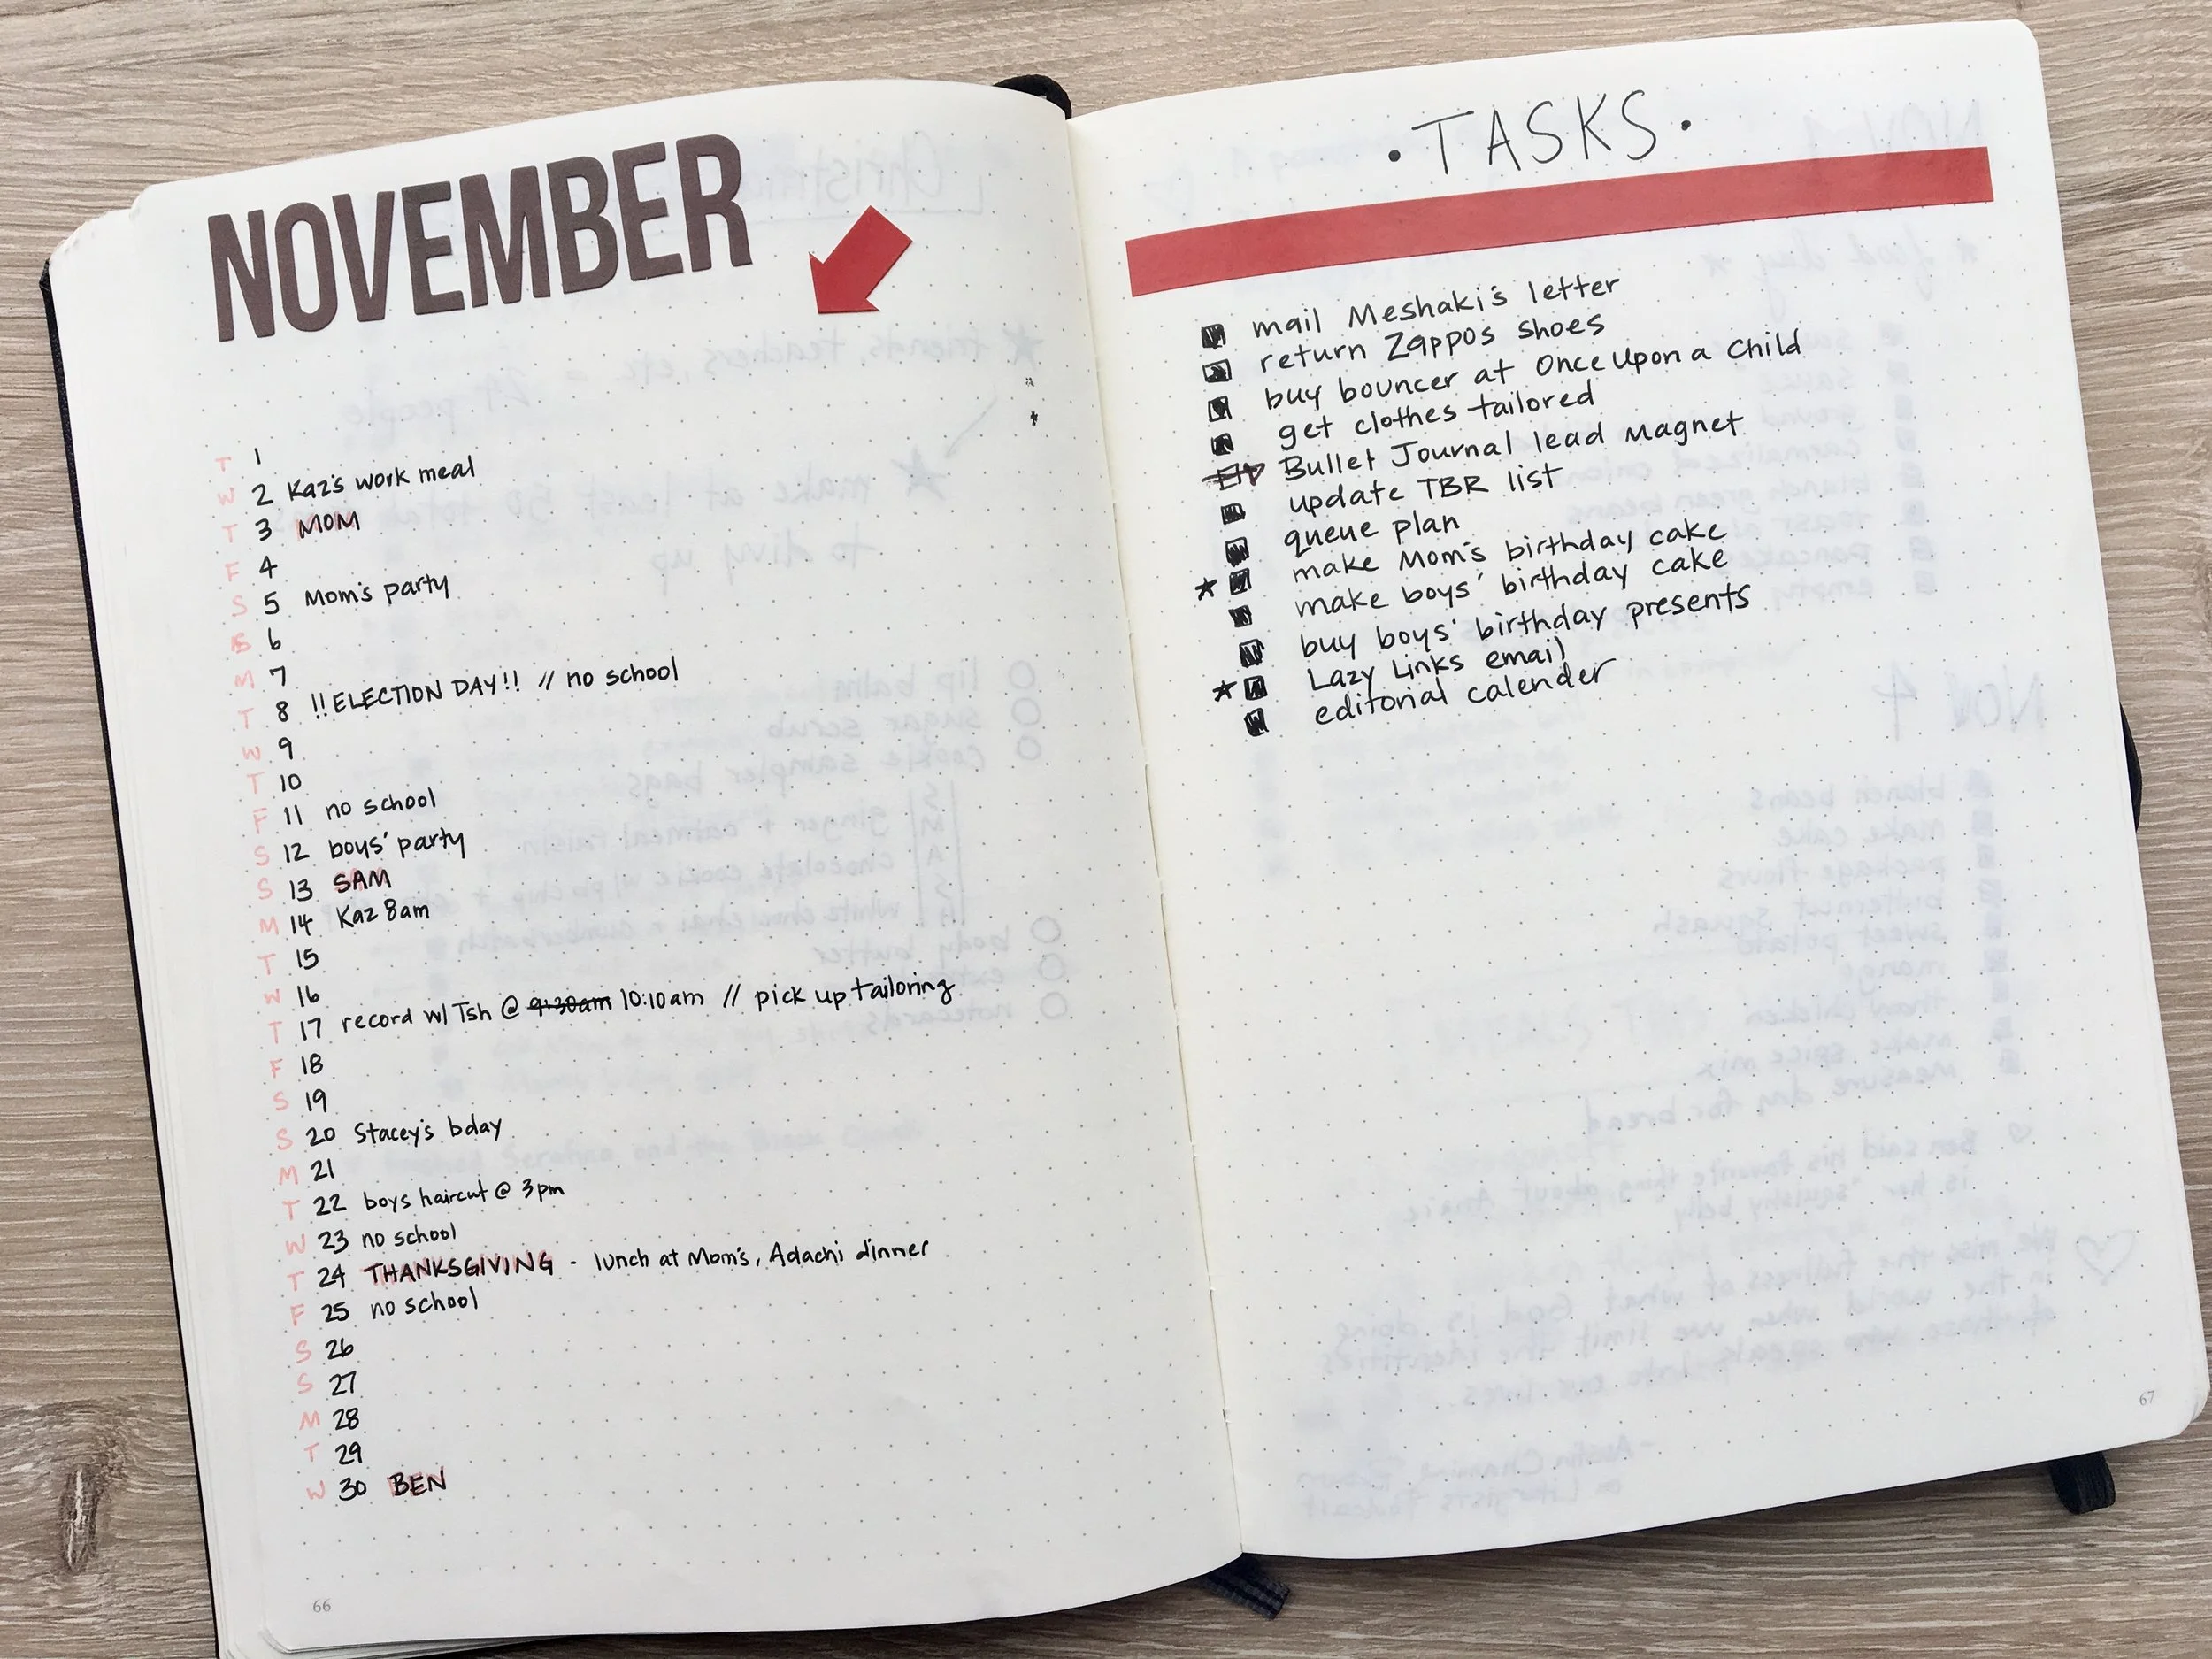 NOVEMBER
T 1
W 2 Kaz's work meal
T 3 MOM
F 4
S 5 Mom's party
S 6
M 7
T 8 !!ELECTION DAY!! // no school
W 9
T 10
F 11 no school
S 12 boys' party
S 13 SAM
M 14 Kaz 8am
T 15
W 16
T 17 record w/ Tsh @ 9:30am 10:10am // pick up tailoring
F 18
S 19
S 20 Stacey's bday
M 21
T 22 boys haircut @ 3pm
W 23 no school
T 24 THANKSGIVING - lunch at Mom's, Adachi dinner
F 25 no school
S 26
S 27
M 28
T 29
W 30 BEN
66
• TASKS •
mail Meshaki's letter
return Zappos shoes
buy bouncer at Once Upon a Child
get clothes tailored
Bullet Journal lead magnet
update TBR list
queue plan
make Mom's birthday cake
make boys' birthday cake
buy boys' birthday presents
Lazy Links email
editorial calender
67